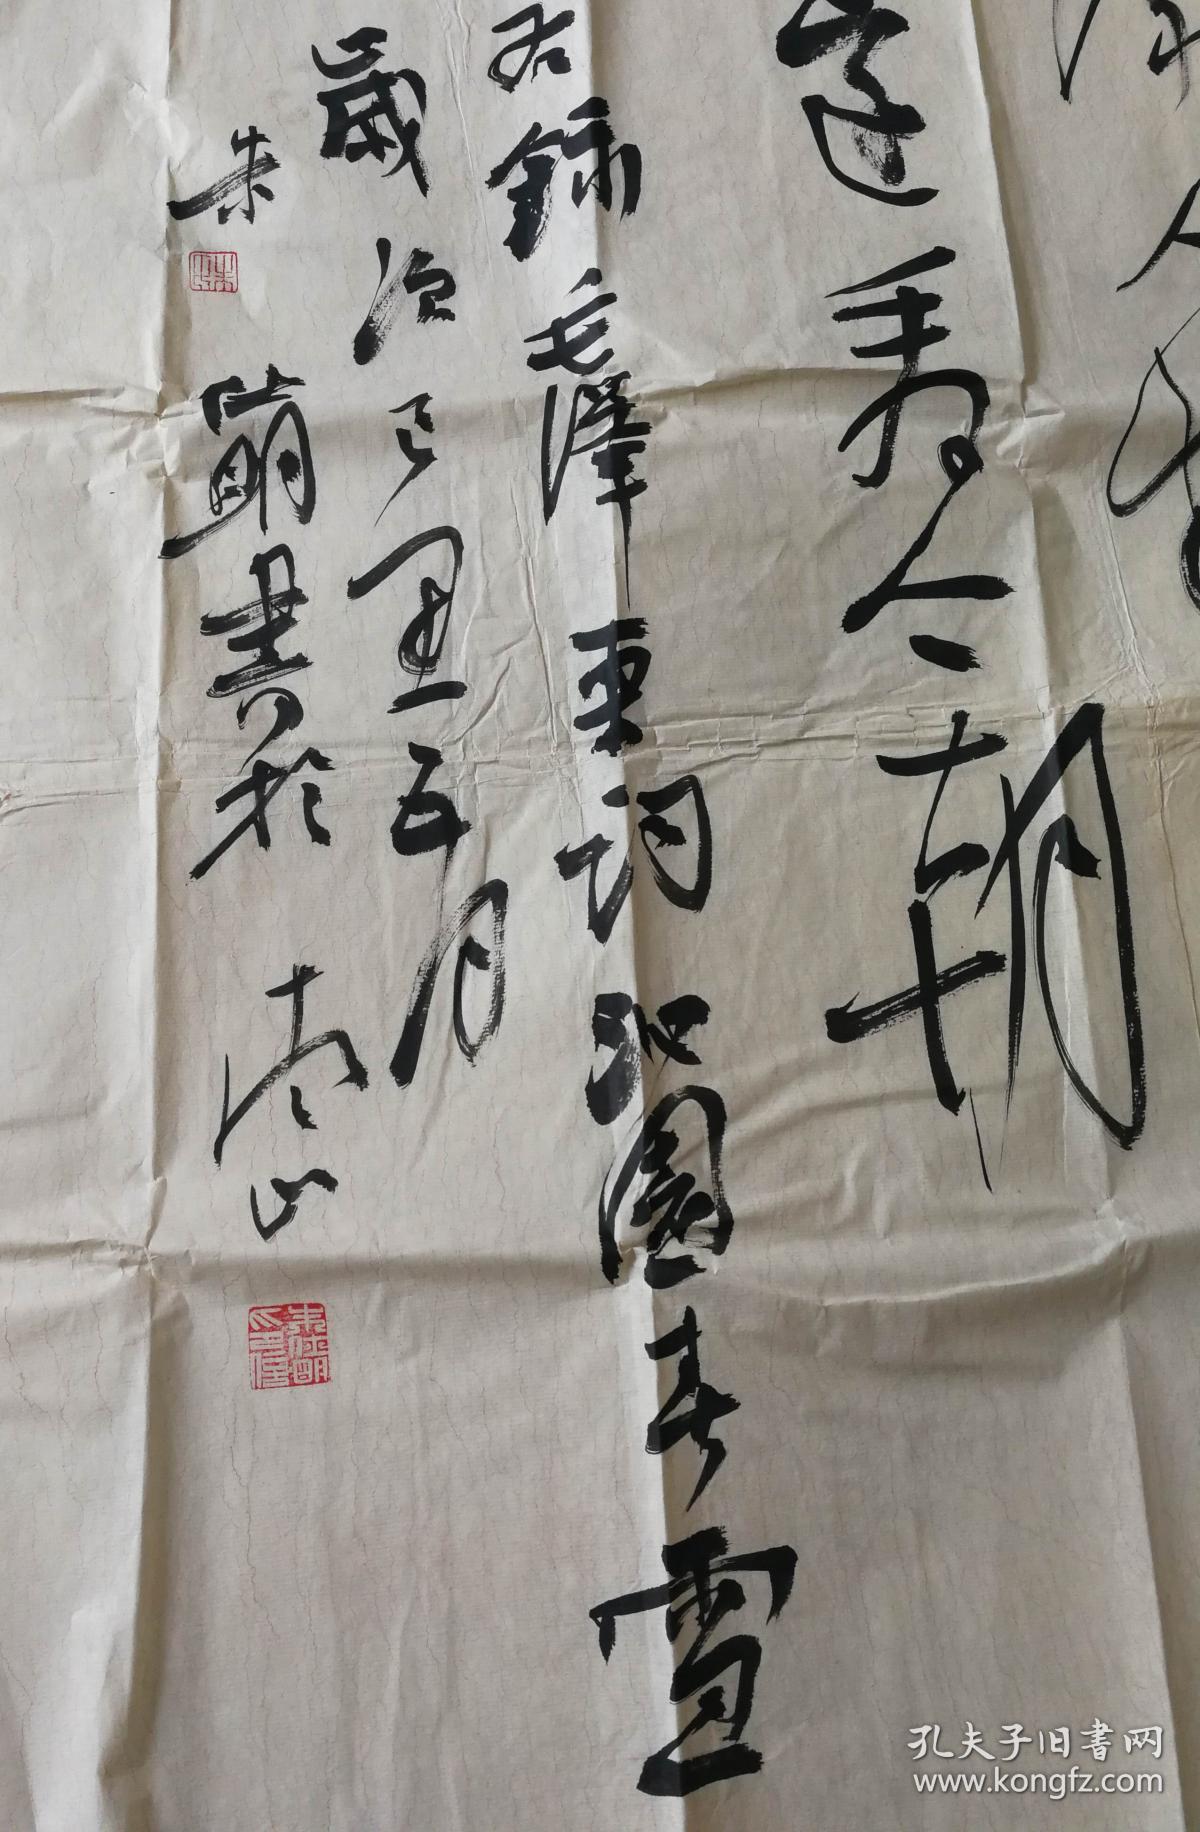 流人物
還看今朝
右錄毛澤東詞沁園春雪
歲次己丑五月
朱仕明書於南山
孔夫子旧書网
www.kongfz.com